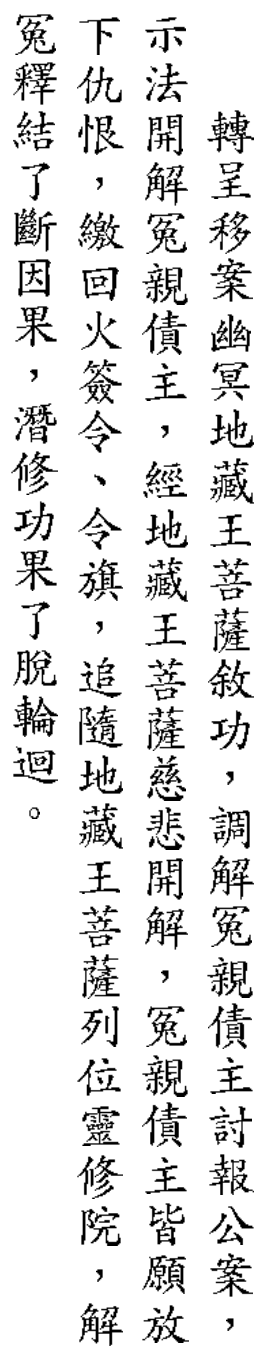 轉呈移案幽冥地藏王菩薩敘功，調解冤親債主討報公案，
示法開解冤親債主，經地藏王菩薩慈悲開解，冤親債主皆願放
下仇恨，繳回火簽令、令旗，追隨地藏王菩薩列位靈修院，解
冤釋結了斷因果，潛修功果了脫輪迴。